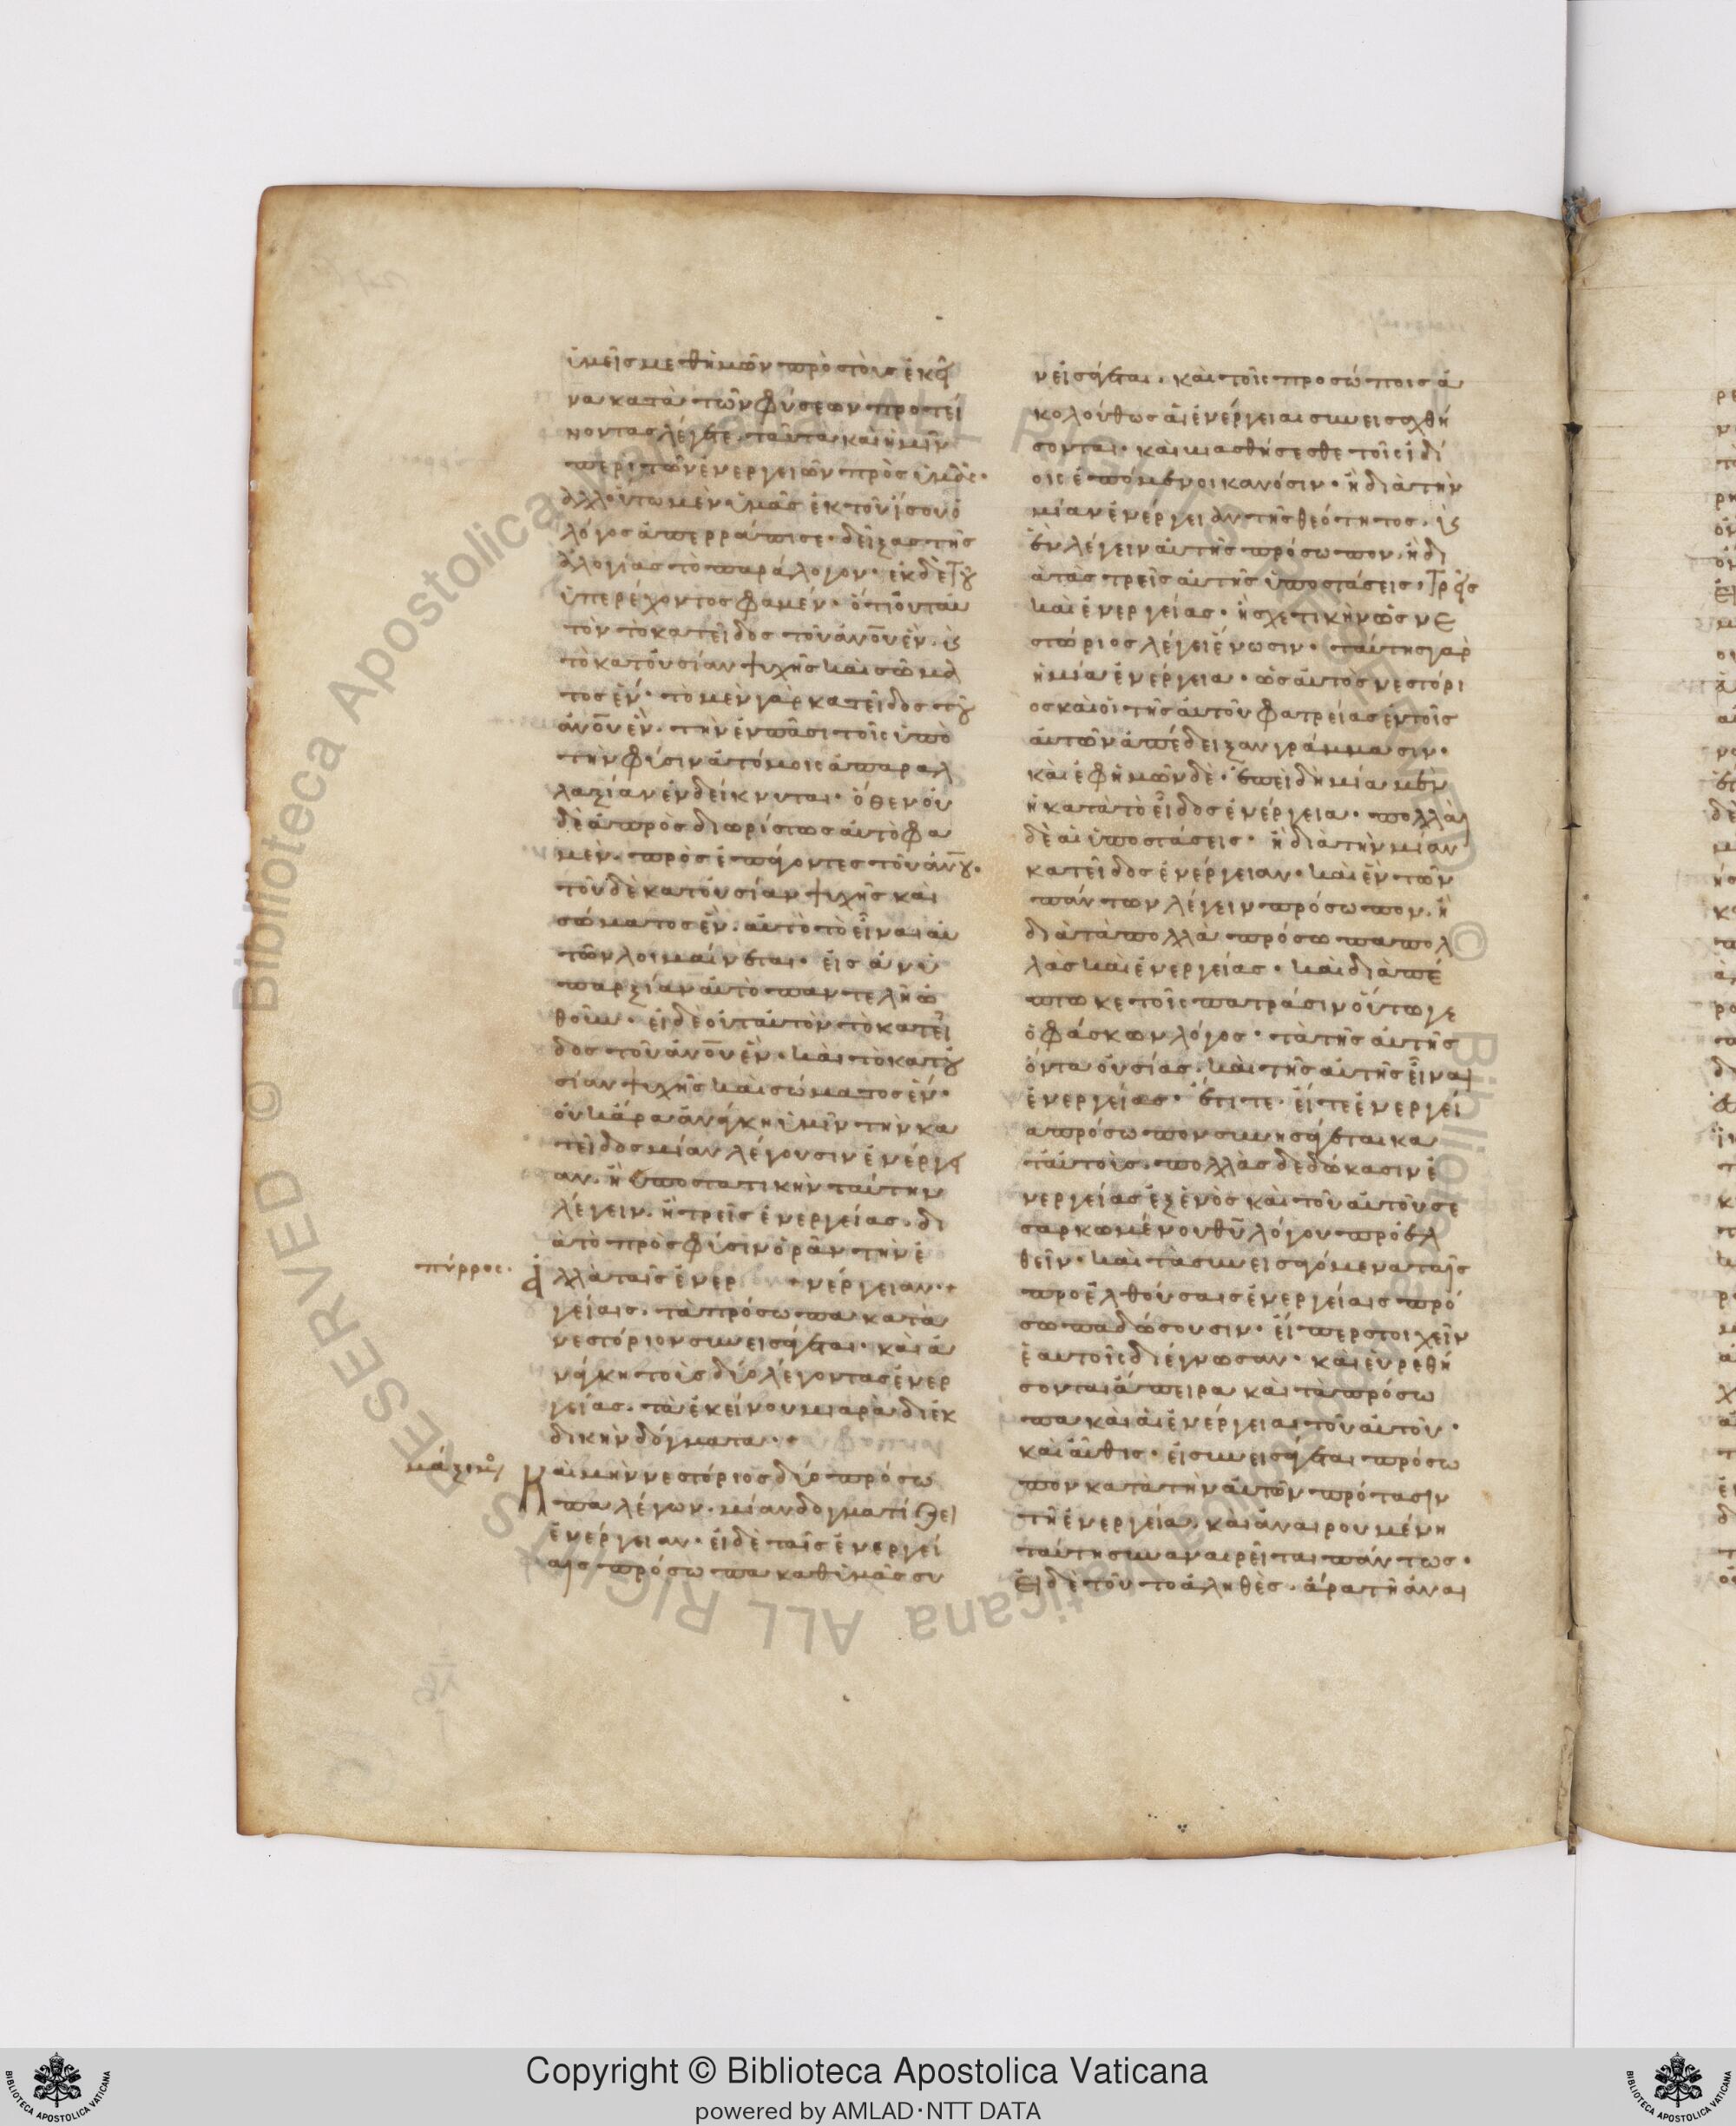 ὑμεῖς μεθ' ἡμῶν πρὸς τοὺς ἐκεῖ
να κατὰ τῶν φύσεων προτεί
νοντας λέγετε. ταῦτα καὶ ἡμῖν
περὶ τῶν ἐνεργειῶν πρὸς ὑμᾶς·
ἀλλ' οὕτω μὲν ὑμᾶς ἐκ τοῦ ἴσου ὁ
λόγος ἀπερράπισε· δείξας τῆς
ἀλογίας τὸ παράλογον· ἐκ δὲ τοῦ
ὑπερέχοντος φαμέν· ὅτι οὐ ταυ
τὸν τὸ κατ' εἶδος τοῦ ἀνου ἓν. καὶ
τὸ κατ' οὐσίαν ψυχῆς καὶ σώμα
τος ἕν· τὸ μὲν γὰρ κατ' εἶδος τοῦ
ἀνου ἓν. τὴν ἐν πᾶσι τοῖς ὑπὸ
τὴν φύσιν ἀτόμοις ἀπαραλ
λαξίαν ἐνδείκνυται· ὅθεν οὐ
δὲ ἀπροσδιορίστως αὐτὸ φα
μὲν. προσεπάγοντες τοῦ ἀνου·
τοῦ δὲ κατ' οὐσίαν ψυχῆς καὶ
σώματος ἓν. αὐτὸ τὸ εἶναι αὐ
τῶν λυμαίνεται· εἰς ἀνυ
παρξίαν αὐτὸ παντελῆ ὠ
θοῦν· εἰ δὲ οὐ ταυτὸν τὸ κατ' εἶ
δος τοῦ ἀνου ἓν· καὶ τὸ κατ' οὐ
σίαν ψυχῆς καὶ σώματος ἕν·
οὐκ ἄρα ἀνάγκη ἡμῖν τὴν κα
τ' εἶδος μίαν λέγουσιν ἐνέργει
αν. ἢ ὑποστατικὴν ταύτην
λέγειν. ἢ τρεῖς ἐνεργείας. δι
ὰ τὸ πρὸς φύσιν ὁρᾶν τὴν ἐ
νέργειαν·+
πύρρος·
ἀλλὰ ταῖς ἐνερ
γείαις. τὰ πρόσωπα κατὰ
νεστόριον συνεισάγεται· καὶ ἀ
νάγκη τοὺς δύο λέγοντας ἐνερ
γείας. τὰ ἐκείνου μιαρὰ διεκ
δικῆν δόγματα·+
μάξιμος
Καὶ μὴν νεστόριος δύο πρόσω
πα λέγων. μίαν δογματίζει
ἐνέργειαν· εἰ δὲ ταῖς ἐνεργεί
αις πρόσωπα καθ' ὑμᾶς συ
νεισάγεται. καὶ τοῖς προσώποις ἀ
κολούθως αἱ ἐνέργειαι συνεισαχθή
σονται· καὶ βιασθήσεσθε τοῖς ἰδί
οις ἑπόμενοι κανόσιν· ἢ διὰ τὴν
μίαν ἐνέργειαν τῆς θεότητος. καὶ
ἓν λέγειν αὐτῆς πρόσωπον. ἢ δι
ὰ τὰς τρεῖς αὐτῆς ὑποστάσεις. τρεῖς
καὶ ἐνεργείας· ἢ σχετικὴν ὡς νε
στόριος λέγει ἕνωσιν· ταύτης γὰρ
ἡ μία ἐνέργεια· ὡς αὐτὸς νεστόρι
ος καὶ οἱ τῆς αὐτοῦ φατρείας ἐν τοῖς
αὐτῶν ἀπέδειξαν γράμμασιν·
καὶ ἐφ' ἡμῶν δὲ· ἐπειδὴ μία μὲν
ἡ κατὰ τὸ εἶδος ἐνέργεια· πολλαὶ
δὲ αἱ ὑποστάσεις· ἢ διὰ τὴν μίαν
κατ' εἶδος ἐνέργειαν· καὶ ἓν τῶν
πάντων λέγειν πρόσωπον. ἢ
διὰ τὰ πολλὰ πρόσωπα πολ
λὰς καὶ ἐνεργείας· καὶ διαπέ
πτωκε τοῖς πατράσιν οὕτω γε
ὁ φάσκων λόγος· τὰ τῆς αὐτῆς
ὄντα οὐσίας. καὶ τῆς αὐτῆς εἶναι
ἐνεργείας· ἔτι τε· εἴ τε ἐνεργεί
α πρόσωπον συνησάγεται κα
τ' αὐτοὺς. πολλὰς δεδώκασιν ἐ
νεργείας ἐξ ἑνὸς καὶ τοῦ αὐτοῦ σε
σαρκωμένου θυ λόγου προελ
θεῖν· καὶ τὰ συνεισαγόμενα ταῖς
προελθούσαις ἐνεργείαις πρό
σωπα δώσουσιν· εἴπερ στοιχεῖν
ἑαυτοῖς διέγνωσαν· καὶ εὑρεθή
σονται ἄπειρα καὶ τὰ πρόσω
πα καὶ αἱ ἐνέργειαι τοῦ αὐτοῦ·
καὶ αὖθις· εἰ συνεισάγεται πρόσω
πον κατὰ τὴν αὐτῶν πρότασιν
τῇ ἐνεργείᾳ. καὶ ἀναιρουμένη
ταύτῃ συναναιρεῖται πάντως·
Εἰ δὲ τοῦτο ἀληθὲς. ἄρα τῇ ἀναι
Copyright © Biblioteca Apostolica Vaticana
powered by AMLAD·NTT DATA